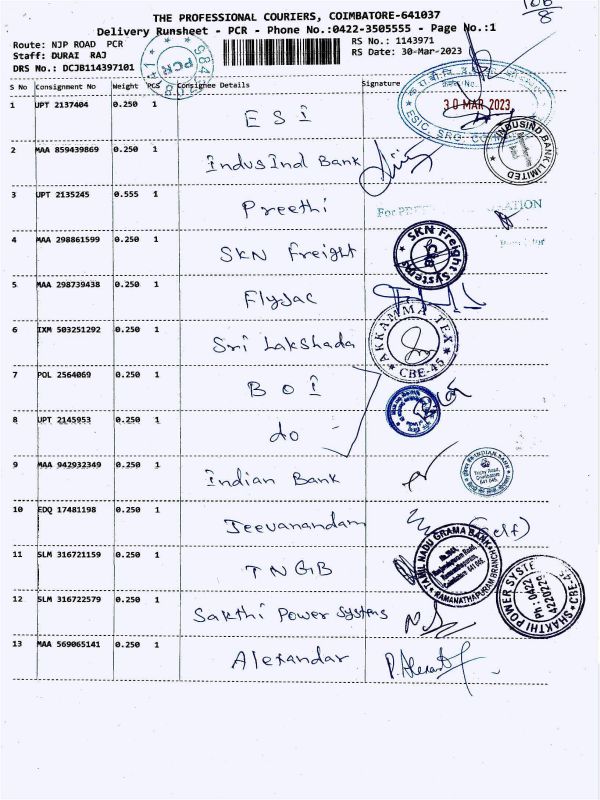 THE PROFESSIONAL COURIERS, COIMBATORE-641037
Delivery Runsheet - PCR - Phone No.:0422-3505555 - Page No.:1
Route: NJP ROAD PCR
RS No.: 1143971
Staff: DURAI RAJ
RS Date: 30-Mar-2023
DRS No.: DCJB114397101
PCR
S No Consignment No Weight PCS Consignee Details Signature
30 MAR 2023
1 UPT 2137404 0.250 1 ESI
INDUSIND BANK LIMITED
2 MAA 859439869 0.250 1 IndusInd Bank
3 UPT 2135245 0.555 1 Preethi
4 MAA 298861599 0.250 1 SKN Freight
SKN Freight Systems
5 MAA 298739438 0.250 1 Flyjac
6 IXM 503251292 0.250 1 Sri Lakshada
AKKAMMA TEX
CBE-45
7 POL 2564069 0.250 1 BOI
8 UPT 2145953 0.250 1 do
9 MAA 942932349 0.250 1 Indian Bank
INDIAN BANK
10 EDQ 17481198 0.250 1 Jeevanandam (self)
11 SLM 316721159 0.250 1 TNGB
TAMIL NADU GRAMA BANK
RAMANATHAPURAM BRANCH
12 SLM 316722579 0.250 1 Sakthi Power Systems
SHAKTHI POWER SYSTE
Ph : 0422
13 MAA 569065141 0.250 1 Alexandar